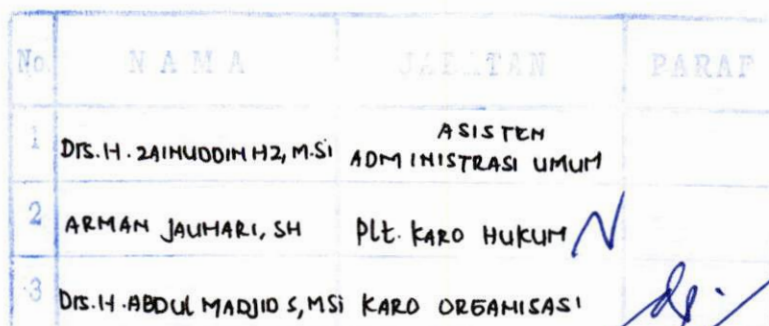 No N A M A JABATAN PARAF
ASISTEN
1 Drs. H. ZAINUDDIN HZ, M.Si ADMINISTRASI UMUM
2 ARMAN JAUHARI, SH Plt. KARO HUKUM
3 Drs. H. ABDUL MADJID S, MSi KARO ORGANISASI